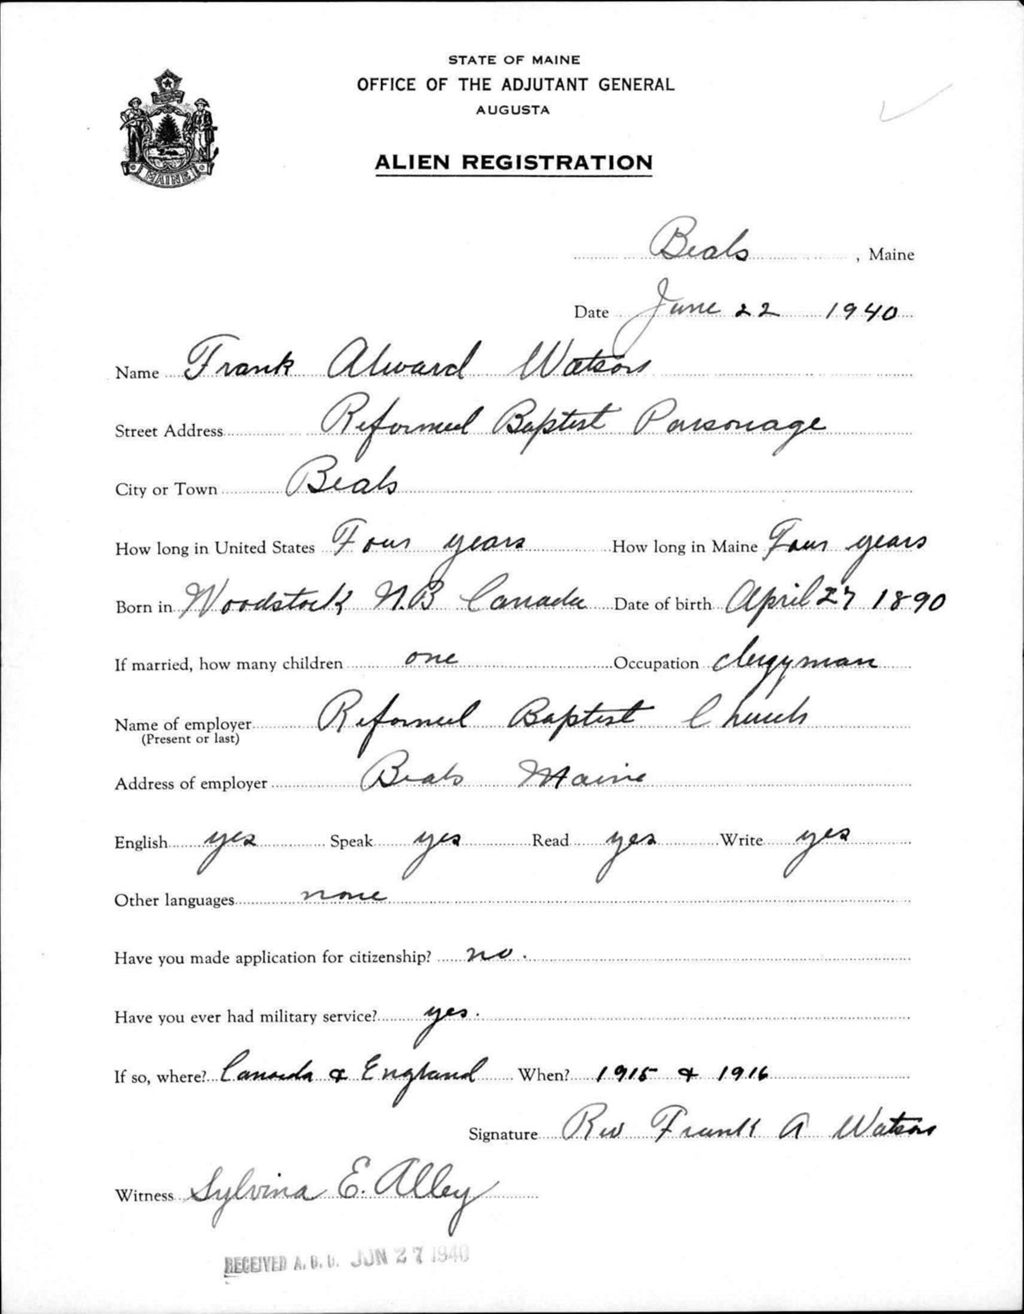 STATE OF MAINE
OFFICE OF THE ADJUTANT GENERAL
AUGUSTA
MAINE
ALIEN REGISTRATION
Beals, Maine
Date June 22 1940
Name Frank Alward Watson
Street Address Reformed Baptist Parsonage
City or Town Beals
How long in United States Four years How long in Maine Four years
Born in Woodstock N.B Canada Date of birth April 27 1890
If married, how many children one Occupation clergyman
Name of employer Reformed Baptist Church
(Present or last)
Address of employer Beals Maine
English yes Speak yes Read yes Write yes
Other languages none
Have you made application for citizenship? no.
Have you ever had military service? yes.
If so, where? Canada & England When? 1915 & 1916
Signature Rev Frank A Watson
Witness Sylvina E. Alley
RECEIVED A. G. O. JUN 27 1940